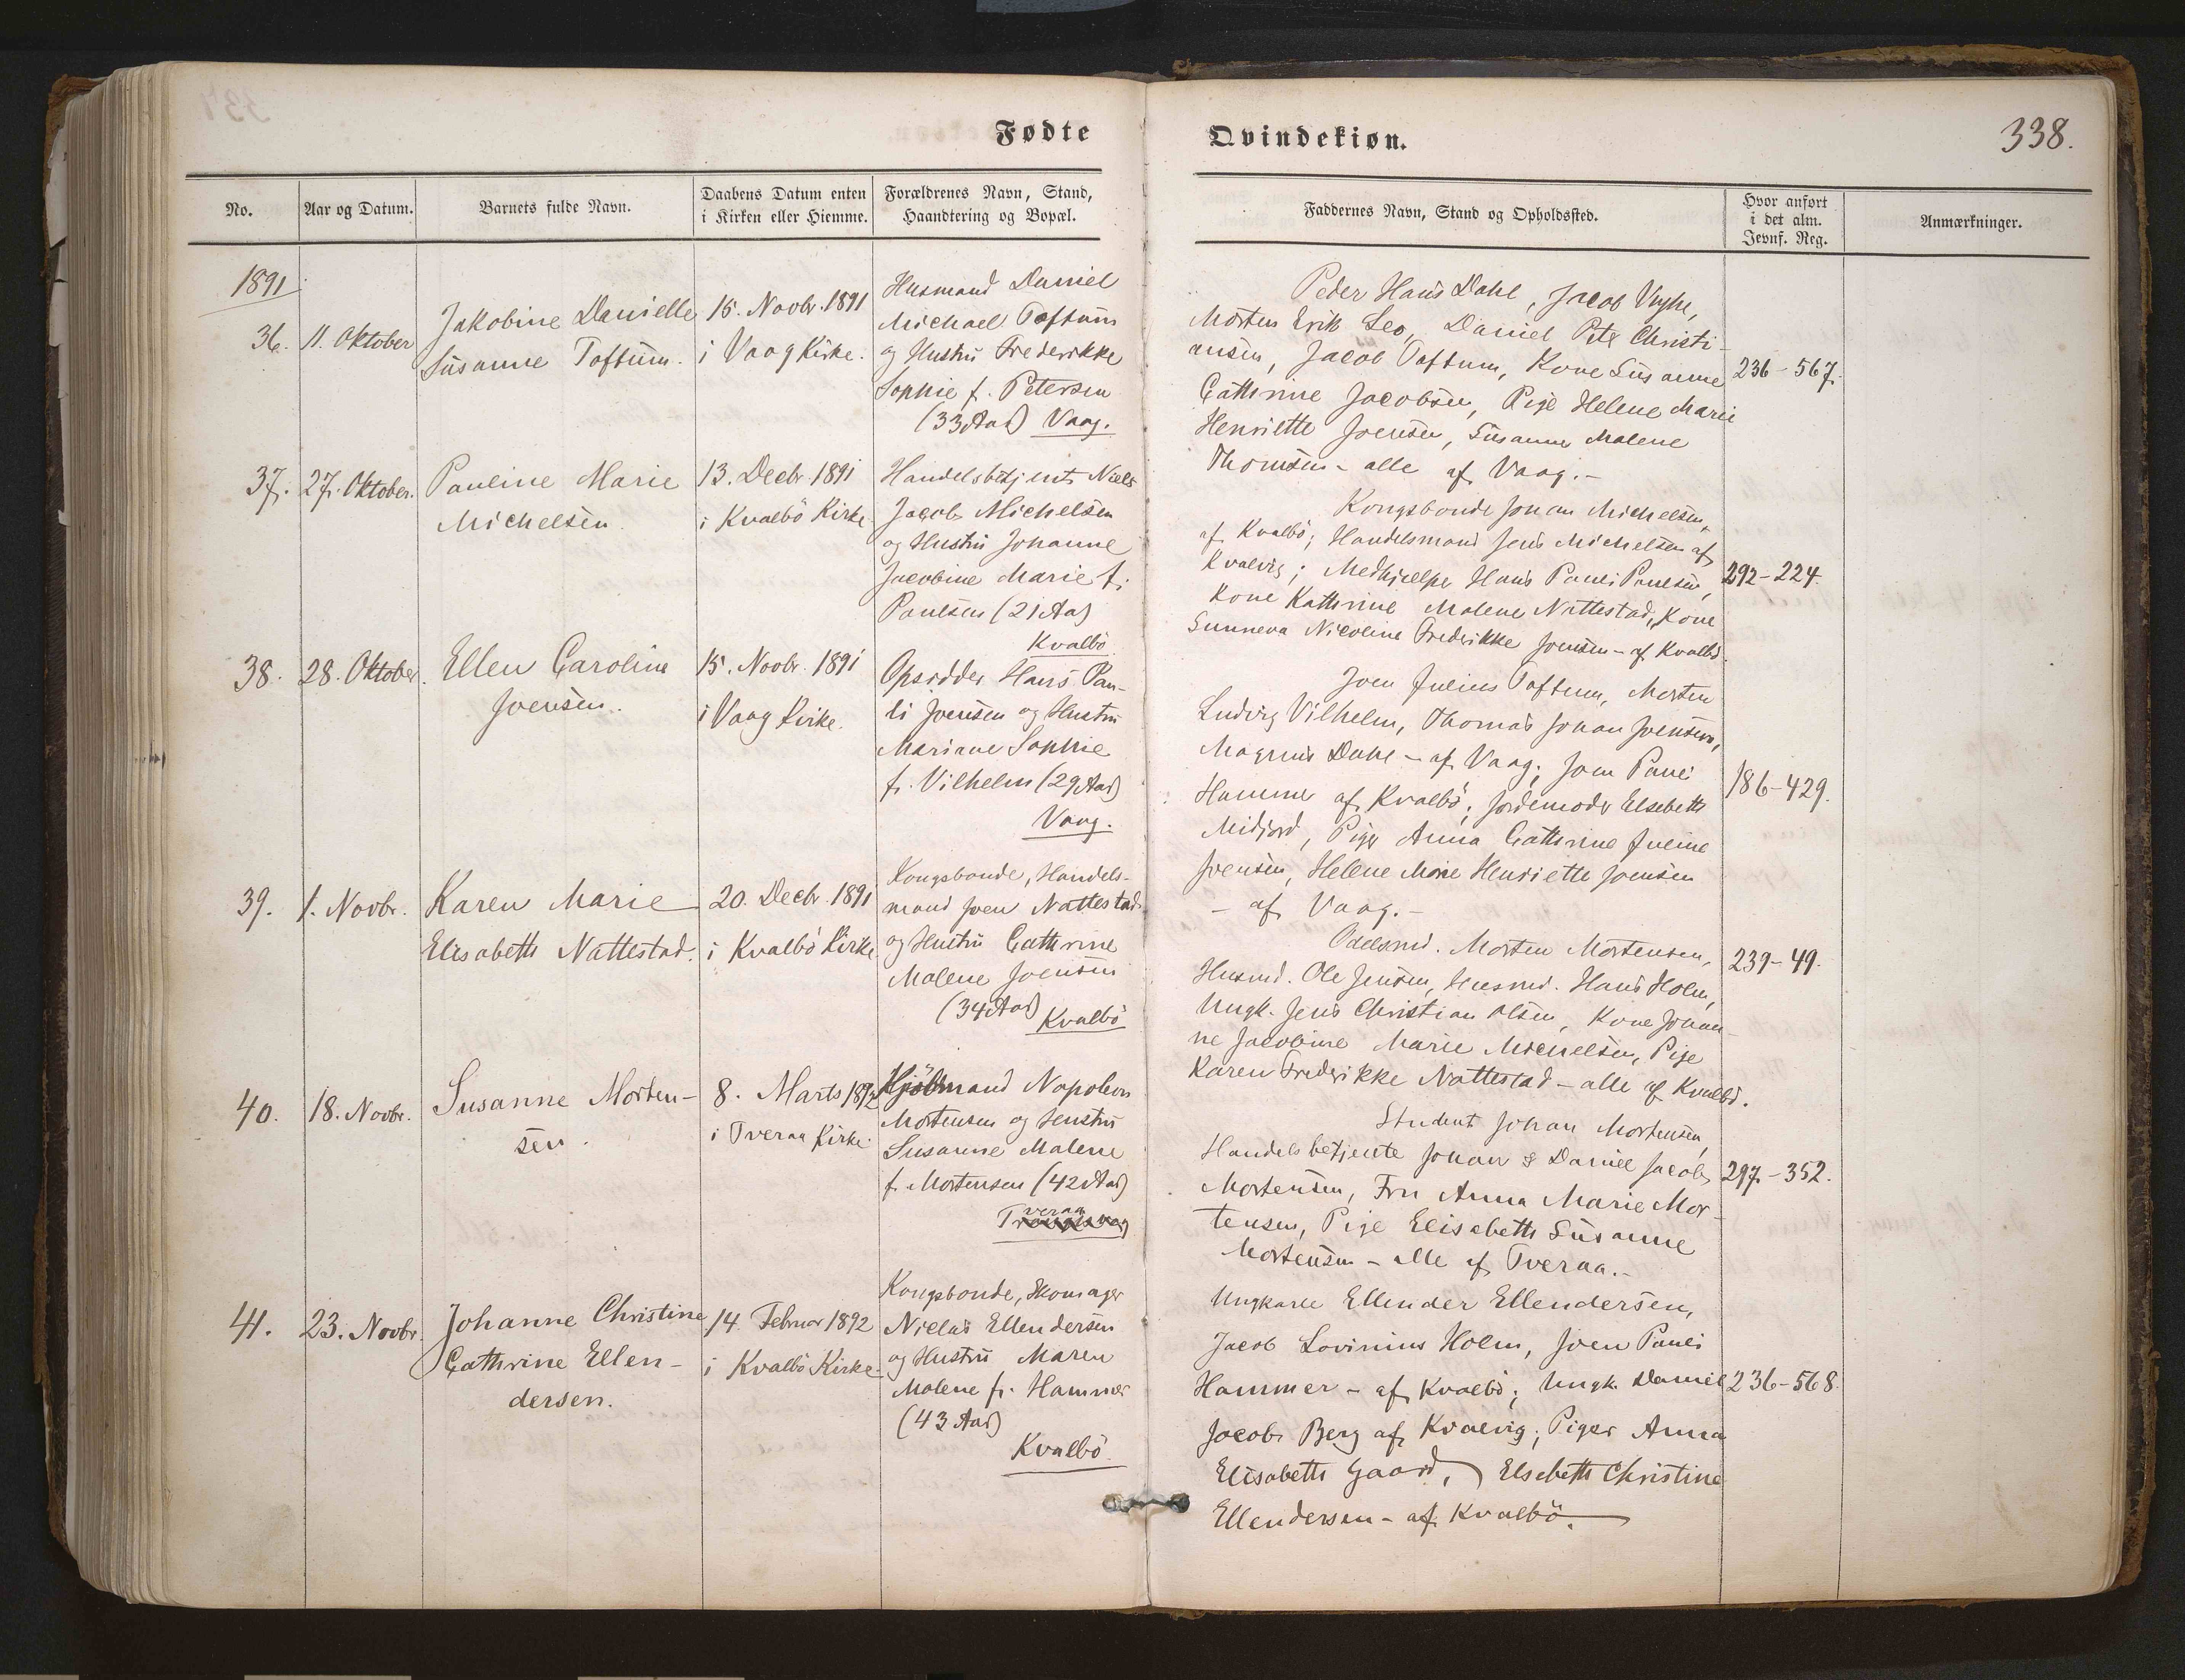 Fødte
Qvindekiøn.
338.
No.
Aar og Datum.
Barnets fulde Navn.
Daabens Datum enten
i Kirken eller Hiemme.
Forældrenes Navn, Stand,
Haandtering og Bopæl.
Faddernes Navn, Stand og Opholdssted.
Hvor anført
i det alm.
Jevnf. Reg.
Anmærkninger.
1891
36.
11. Oktober
Jakobine Danielle
Susanne Toftum.
15. Novbr. 1891
i Vaag Kirke.
Husmand Daniel
Michael Toftum
og Hustru Frederikke
Sophie f. Petersen
(33 Aar) Vaag.
Peder Hans Dahl, Jacob Vighe,
Morten Erik Leo, Daniel Peter Christi-
ansen, Jacob Toftum, Kone Susanne
Cathrine Jacobsen, Pige Helene Marie
Henriette Joensen, Susanne Malene
Thomsen - alle af Vaag.-
236-567.
37.
27. Oktober.
Pauline Marie
Michelsen.
13. Decbr 1891
i Kvalbö Kirke
Handelsbetjent Niels
Jacob Michelsen
og Hustru Johanne
Jacobine Marie f.
Poulsen (21 Aar)
Kvalbö
Kongsbonde Johan Michelsen,
af Kvalbö; Handelsmand Jens Michelsen af
Kvalvig; Medhjælper Hans Pauli Poulsen,
Kone Kathrine Malene Nattestad, Kone
Sunneva Nicoline Frederikke Joensen - af Kvalbö.
292-224.
38.
28. Oktober.
Ellen Caroline
Joensen.
15. Novbr. 1891
i Vaag Kirke.
Opsidder Hans Pau-
li Joensen og Hustru
Mariane Sophie
f. Vilhelm (29 Aar)
Vaag.
Joen Julius Toftum, Morten
Ludvig Vilhelm, Thomas Johan Joensen,
Magnus Dahl - af Vaag; Joen Pauli
Hammer af Kvalbö; Jordemoder Elsebeth
Midjord, Piger Anna Cathrine Juline
Joensen, Helene Marie Henriette Joensen
- af Vaag.-
186-429.
39.
1. Novbr.
Karen Marie
Elisabeth Nattestad.
20. Decbr. 1891
i Kvalbö Kirke
Kongsbonde, Handels-
mand Joen Nattestad
og Hustru Cathrine
Malene Joensen
(34 Aar) Kvalbö
Odelsmd. Morten Mortensen,
Husmd. Ole Jensen, Husmd. Hans Holm,
Ungk. Jens Christian Olsen, Kone Johan-
ne Jacobine Marie Michelsen, Pige
Karen Frederikke Nattestad - alle af Kvalbö.
239-49.
40.
18. Novbr.
Susanne Morten-
sen.
8. Marts 1892
i Tveraa Kirke.
Kjöbmand Napoleon
Mortensen og Hustru
Susanne Malene
f. Mortensen (42 Aar)
Tveraa
Student Johan Mortensen,
Handelsbetjente Johan & Daniel Jacob
Mortensen, Fru Anna Marie Mor-
tensen, Pige Elisabeth Susanne
Mortensen - alle af Tveraa.-
297-352.
41.
23. Novbr.
Johanne Christine
Cathrine Ellen-
dersen.
14. Februar 1892
i Kvalbö Kirke
Kongsbonde, Skomager
Niclas Ellendersen
og Hustru Maren
Malene f. Hammer
(43 Aar)
Kvalbö.
Ungkarle Ellender Ellendersen,
Jacob Lovinius Holm, Joen Pauli
Hammer - af Kvalbö; Ungk. Daniel
Jacob Berg af Kvalvig; Piger Anna
Elisabeth Gaard, Elsebeth Christine
Ellendersen - af Kvalbö.
236-568.